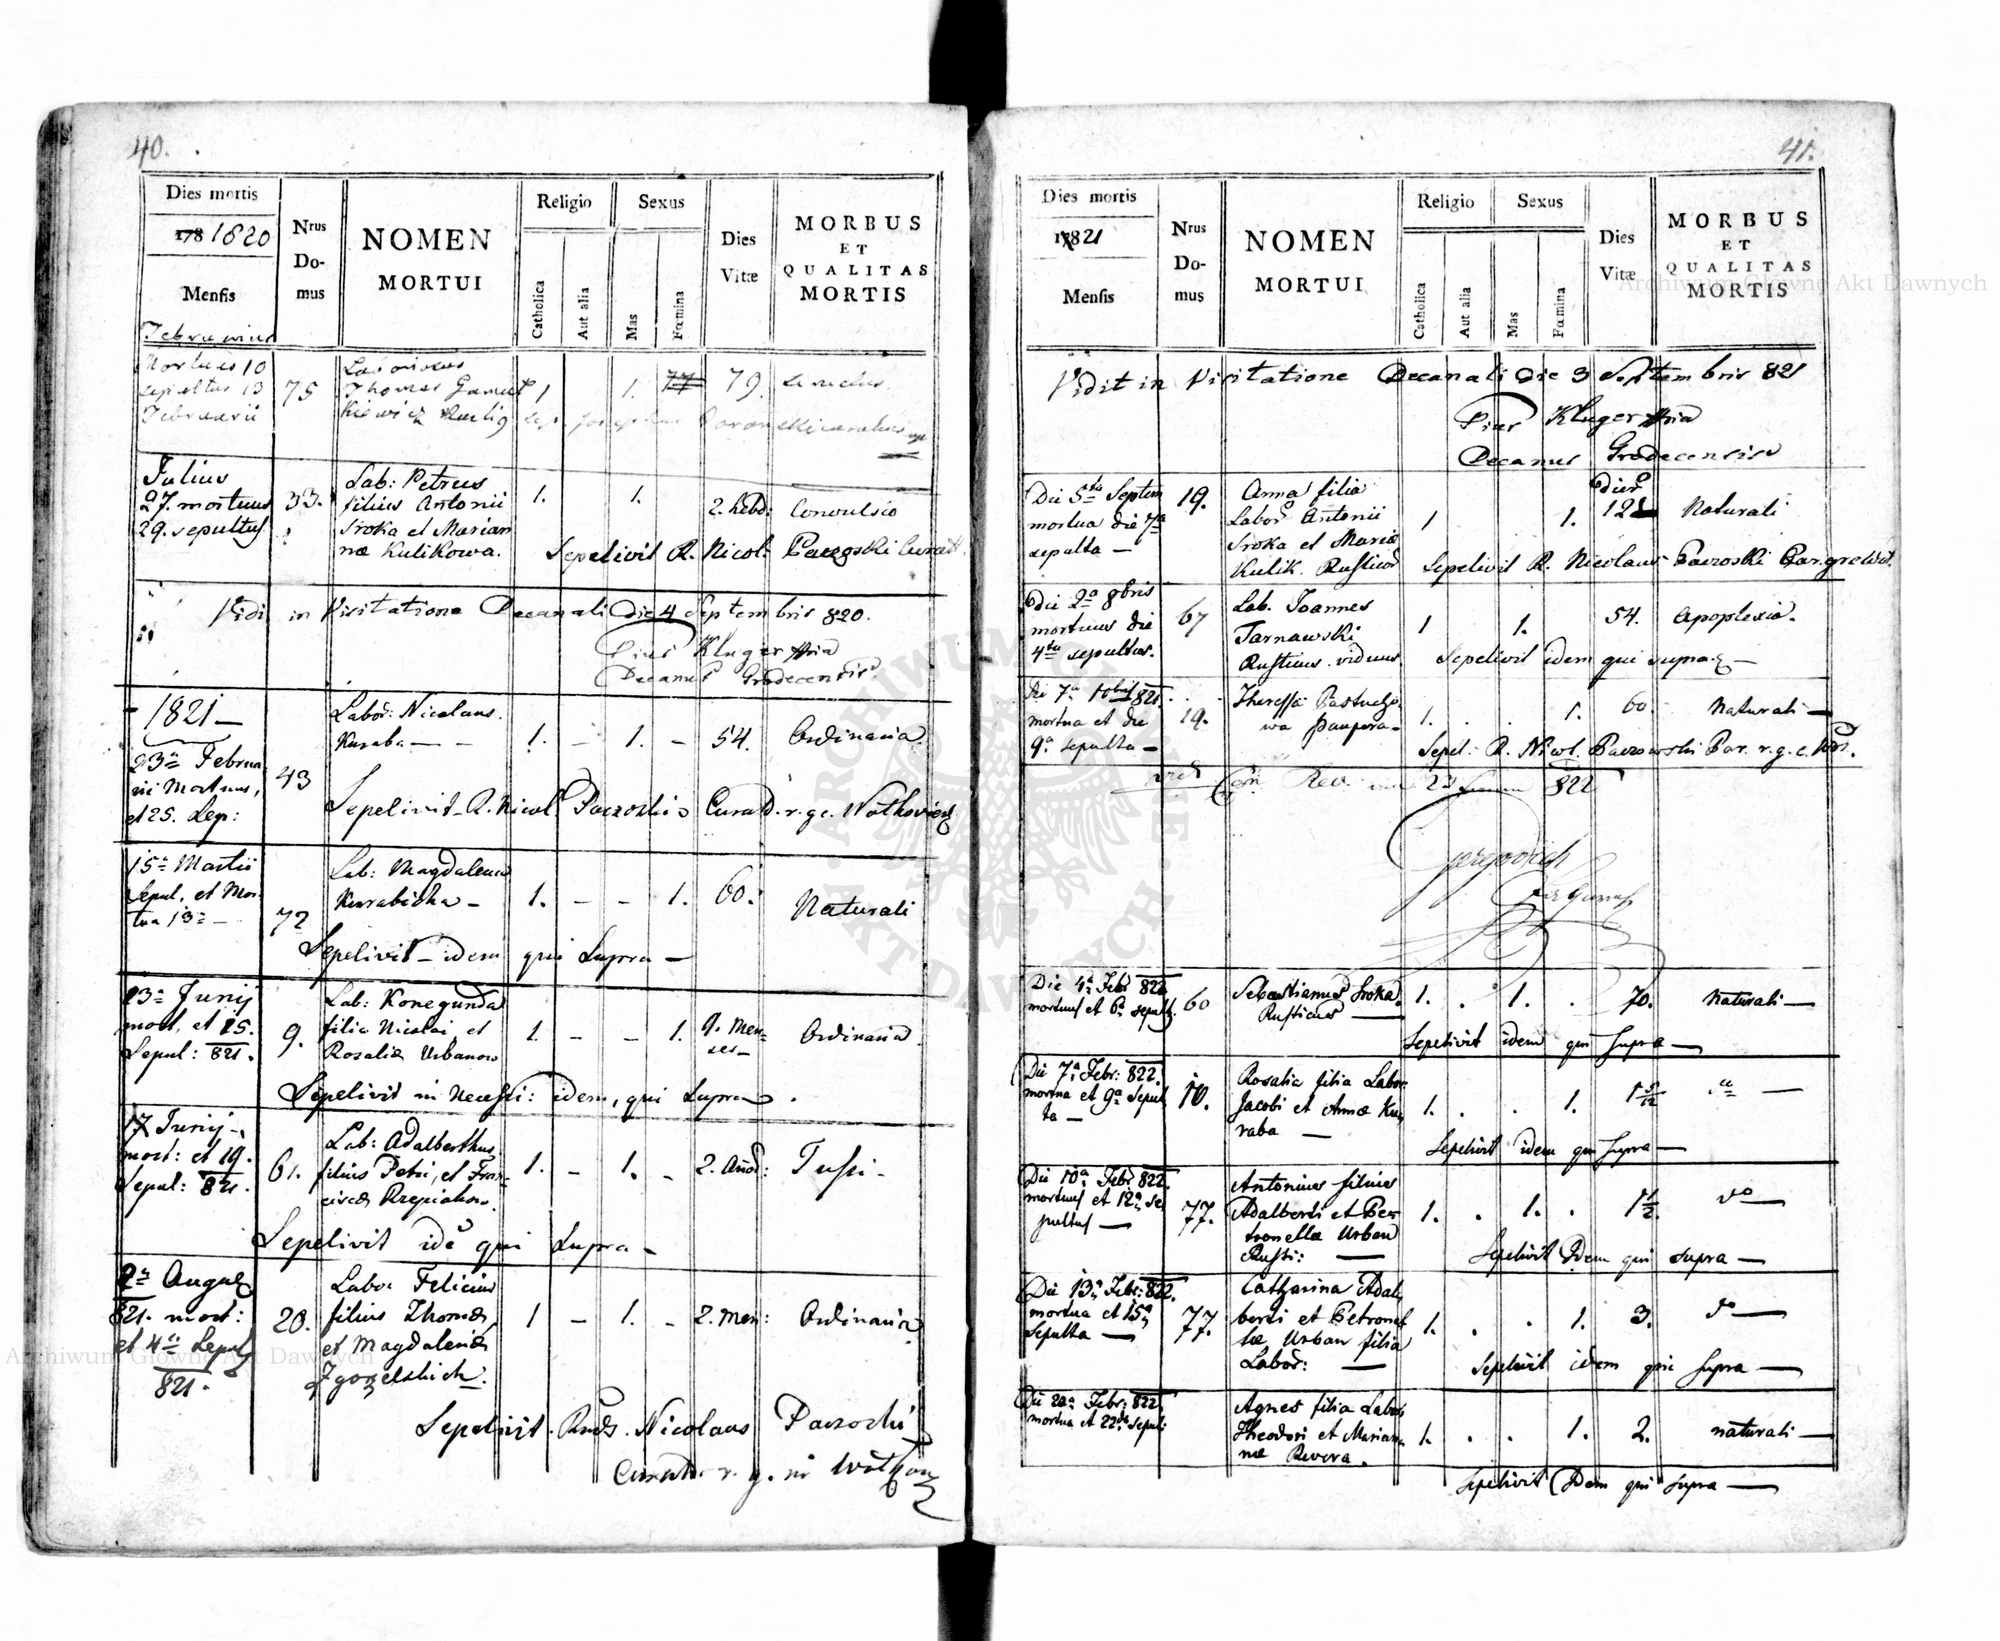 40.
Dies mortis
178 1820
Mensis
Nrus
Do-
mus
NOMEN
MORTUI
Religio
Catholica
Aut alia
Sexus
Mas
Fœmina
Dies
Vitæ
MORBUS
ET
QUALITAS
MORTIS
Februarius
Mortuus 10
sepultus 13
Februarii
75
Laboriosus
Thomas
1
1.
77
79.
Julius
27. mortuus
29. sepultus
33.
Lab: Petrus
filius Antonii
Sroka et Marian
næ Kulikowa.
1.
1.
2. hebd:
Convulsio
Sepelivit R. Nicol:
Vidi in Visitatione Decanali Die 4 Septembris 820.
Pius Kluger
Decanus Grodecensis
1821 —
23a Februa
rii Mortuus,
et 25. Sep:
43
Labor: Nicolaus
Kuraba — —
1. – 1. – 54.
Ordinaria
Sepelivit R. Nicol.
15a Martii
Sepul, et Mor-
tua 13a —
72
Lab: Magdalena
Kurabicha —
1. – – 1. 60.
Naturali
Sepelivit — idem qui Supra —
23a Junij
mort, et 25.
Sepul: 821.
9.
Lab: Konegunda
filia Nicolai et
Rosaliæ Urbanow
1. – – 1.
9. Men-
ses —
Ordinaria
Sepelivit in idem, qui Supra .
17 Junij —
mort: et 19.
Sepul: 821.
61.
Lab: Adalberthus
filius Petri, et Fran-
ciscæ
1. – 1. –
2. Año:
Tussi —
Sepelivit idē qui Supra —
2a Aug
821. mort:
et 4ta Sepul
821.
20.
Labor Felicius
filius Thomæ
et Magdalenæ
1 – 1. – 2. Men:
Ordinaria
Sepelivit Nicolaus
41.
Dies mortis
17821
Mensis
Nrus
Do-
mus
NOMEN
MORTUI
Religio
Catholica
Aut alia
Sexus
Mas
Fœmina
Dies
Vitæ
MORBUS
ET
QUALITAS
MORTIS
Vidit in Visitatione Decanali Die 3 Septembris 821
Pius Kluger
Decanus Grodecensis
Die 5ta Septem
mortua die 7a
sepulta —
19.
Anna filia
Labor Antonii
Sroka et Maria
Kulik. Rustico
1
1.
dier
12
Naturali
Sepelivit R. Nicolaus
Die 2a 8bris
mortuus die
4ta sepultus.
67
Lab. Joannes
Tarnawski
Rusticus viduus
1
1.
54.
Apoplexia.
Sepelivit idem qui supra —
Die 7a 821
mortua et die
9a sepulta —
19.
Theressa
1. . . 1. 60.
Naturali —
Sepel: R. Nicol.
822
Die 4a Febr 822
mortuus et 6a sepult
60
Sebastianus Sroka
Rusticus —
1. . 1. . 70.
Naturali —
Sepelivit idem qui supra —
Die 7a Febr: 822.
mortua et 9a Sepul
ta —
10.
Rosalia filia Labor
Jacobi et Annæ Ku
raba —
1. . . 1. 1 5/12
Sepelivit idem qui supra —
Die 10a Febr 822.
mortuus et 12a se
pultus —
77.
Antonius filius
Adalberti et Pe
tronellæ Urban
Rusti: —
1. . 1. . 1 1/2.
do —
Sepelivit Idem qui supra —
Die 13a Febr: 822.
mortua et 15a
Sepulta —
77.
Catharina Adal
berti et Petronel
læ Urban filia
Labor: —
1. . . 1. 3.
do —
Sepelivit idem qui supra —
Die 20a Febr: 822
mortua et 22da sepul
Agnes filia Labor
Theodori et Marian
næ Rivera.
1. . . 1. 2.
naturali —
Sepelivit Idem qui supra —
Archiwum Główne Akt Dawnych
Archiwum Główne Akt Dawnych
ARCHIWUM GŁÓWNE AKT DAWNYCH